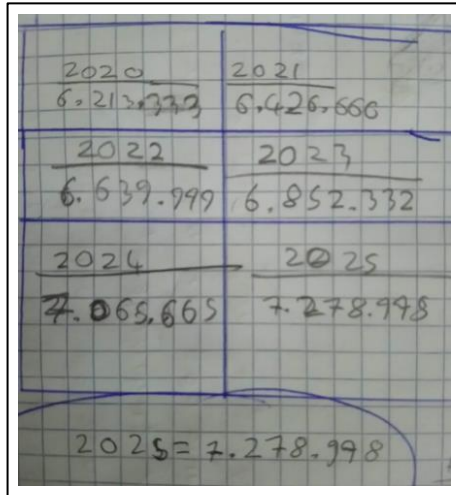 2020 2021
6.213.333 6.426.666
2022 2023
6.639.999 6.852.332
2024 2025
7.065.665 7.278.998
2025=7.278.998